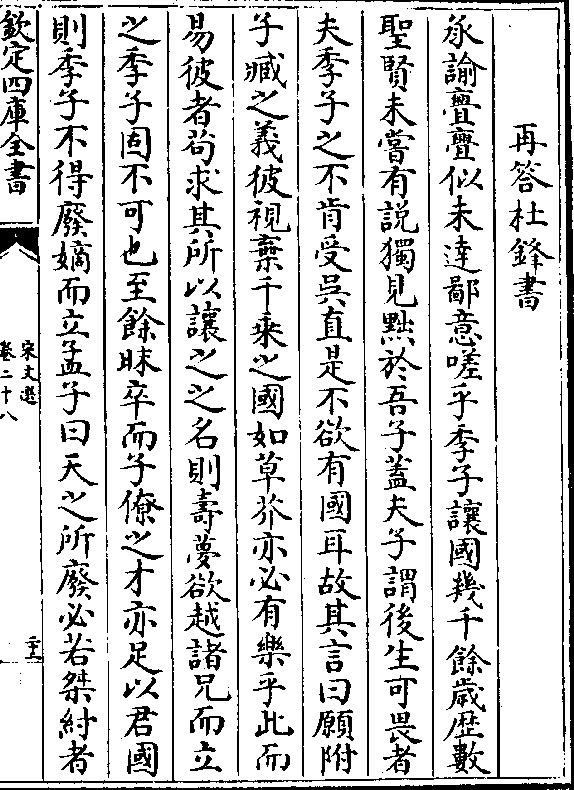 再答杜鋒書
承諭亹亹似未達鄙意嗟乎季子讓國幾千餘歲歴數
聖賢未嘗有説獨見黜於吾子蓋夫子謂後生可畏者
夫季子之不肯受吳直是不欲有國耳故其言曰願附
子臧之義彼視棄千乗之國如草芥亦必有樂乎此而
易彼者茍求其所以讓之之名則壽夢欲越諸兄而立
之季子固不可也至餘昧卒而子僚之才亦足以君國
則季子不得廢嫡而立孟子曰天之所廢必若桀紂者
欽定四庫全書
宋文選
卷二十八
二十一